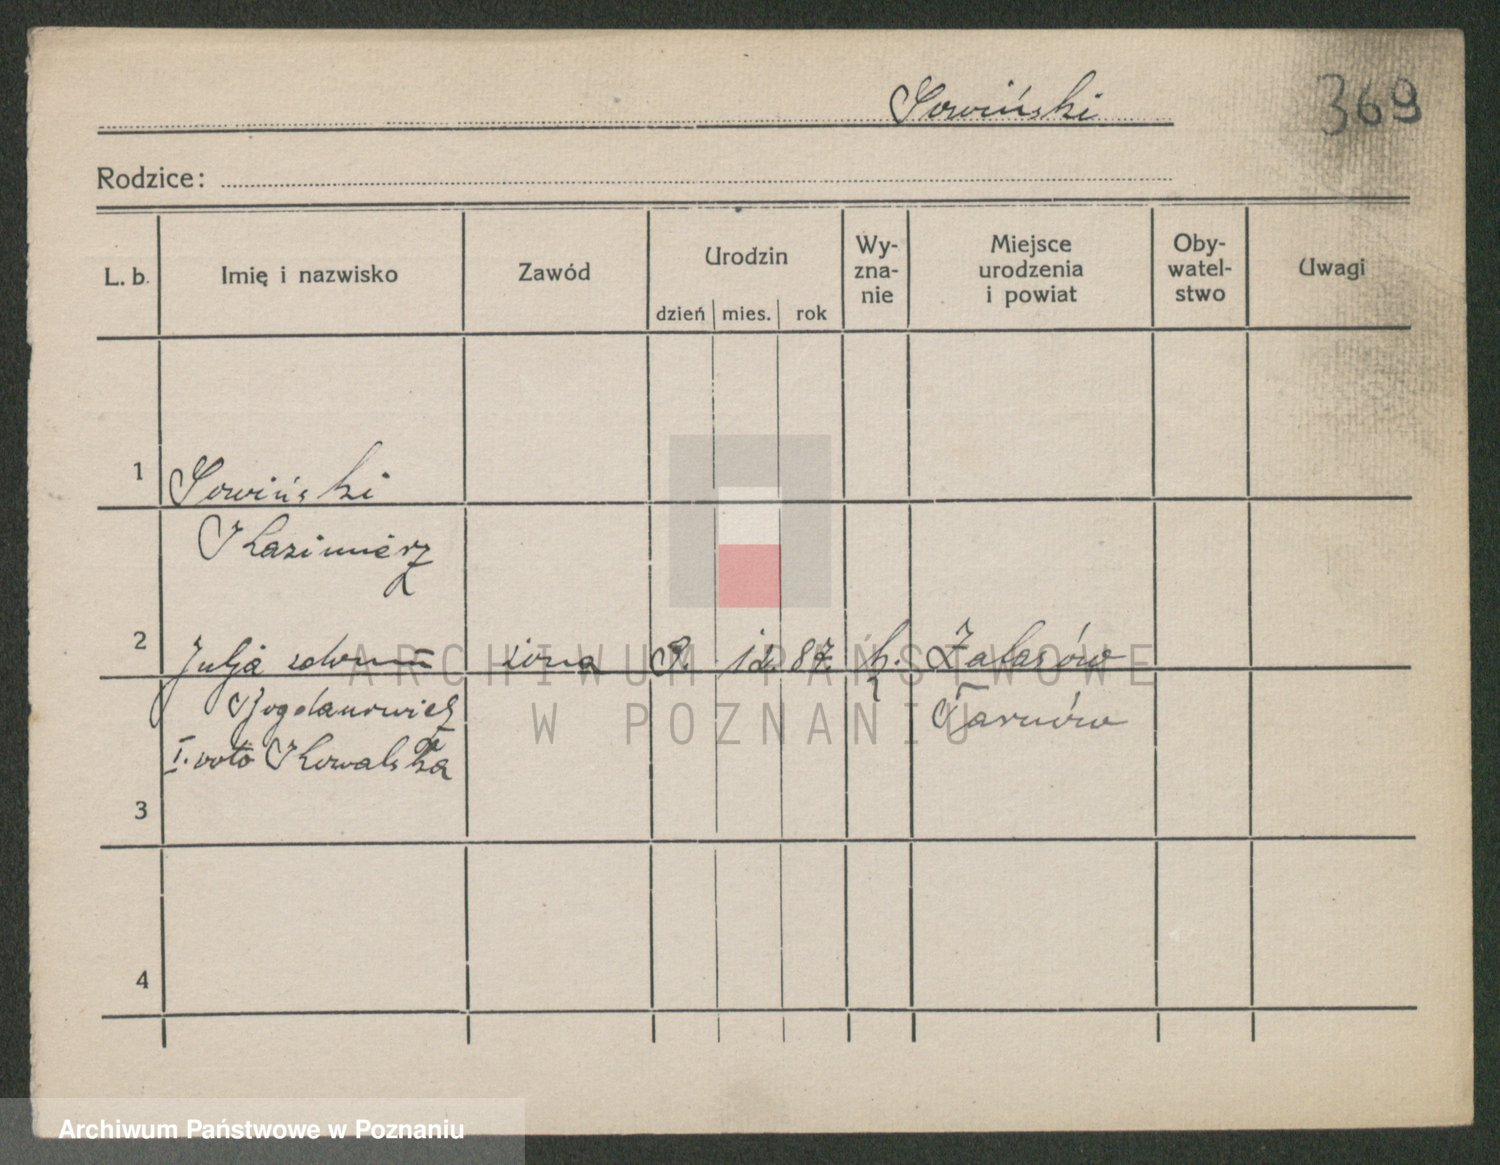 Sowiński
369
Rodzice:
L. b.
Imię i nazwisko
Zawód
Urodzin
dzień mies. rok
Wy-
zna-
nie
Miejsce
urodzenia
i powiat
Oby-
watel-
stwo
Uwagi
1 Sowiński
Kazimierz
2 Julja żona 12. 87. Zalasów
Bogdanowicz Tarnów
I. voto Kowalska
3
4
ARCHIWUM PAŃSTWOWE
W POZNANIU
Archiwum Państwowe w Poznaniu